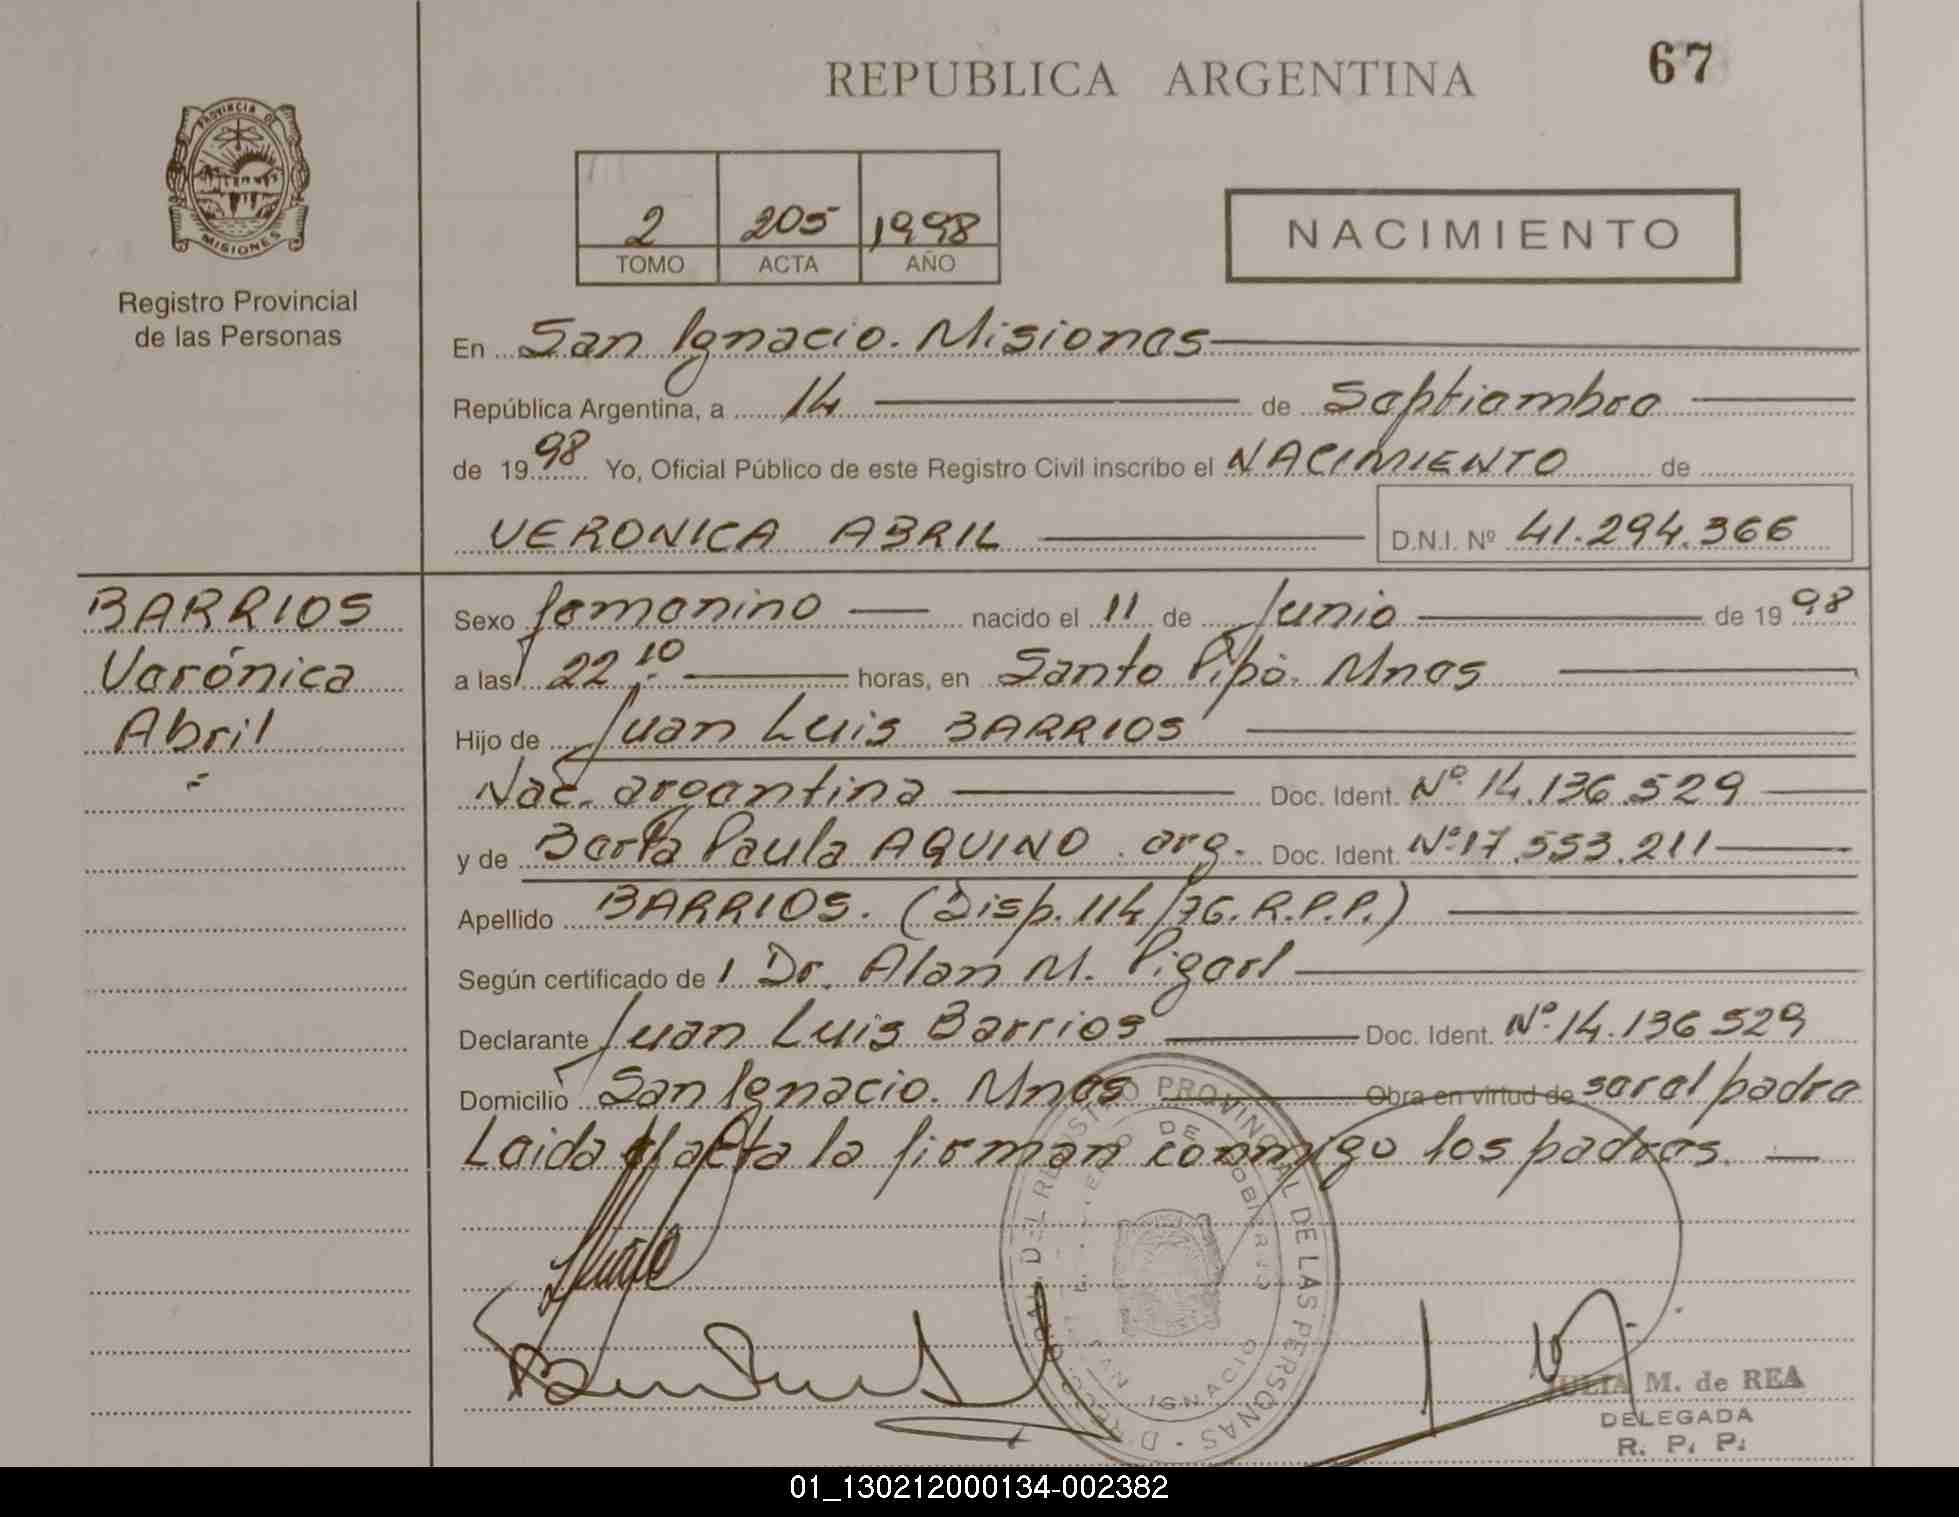 67
REPUBLICA ARGENTINA
PROVINCIA DE
MISIONES
Registro Provincial
de las Personas
2 205 1998
TOMO ACTA AÑO
NACIMIENTO
En San Ignacio. Misiones
República Argentina, a 14 de Septiembre
de 1998 Yo, Oficial Público de este Registro Civil inscribo el NACIMIENTO de
VERONICA ABRIL D.N.I. Nº 41.294.366
BARRIOS
Verónica
Abril
Sexo femenino nacido el 11 de Junio de 1998
a las 22:10 horas, en Santo Pipó. Mnes
Hijo de Juan Luis BARRIOS
Nac. argentina Doc. Ident. Nº 14.136.529
y de Berta Paula AQUINO. arg. Doc. Ident. Nº 17.553.211
Apellido BARRIOS. (Disp. 114/76. R.P.P.)
Según certificado de 1 Dr. Alan M.
Declarante Juan Luis Barrios Doc. Ident. Nº 14.136.529
Domicilio San Ignacio. Mnes Obra en virtud de ser el padre
Leida el acta la firman conmigo los padres.
REGISTRO PROVINCIAL DE LAS PERSONAS
SAN IGNACIO
JULIA M. de REA
DELEGADA
R. P. P.
01_130212000134-002382